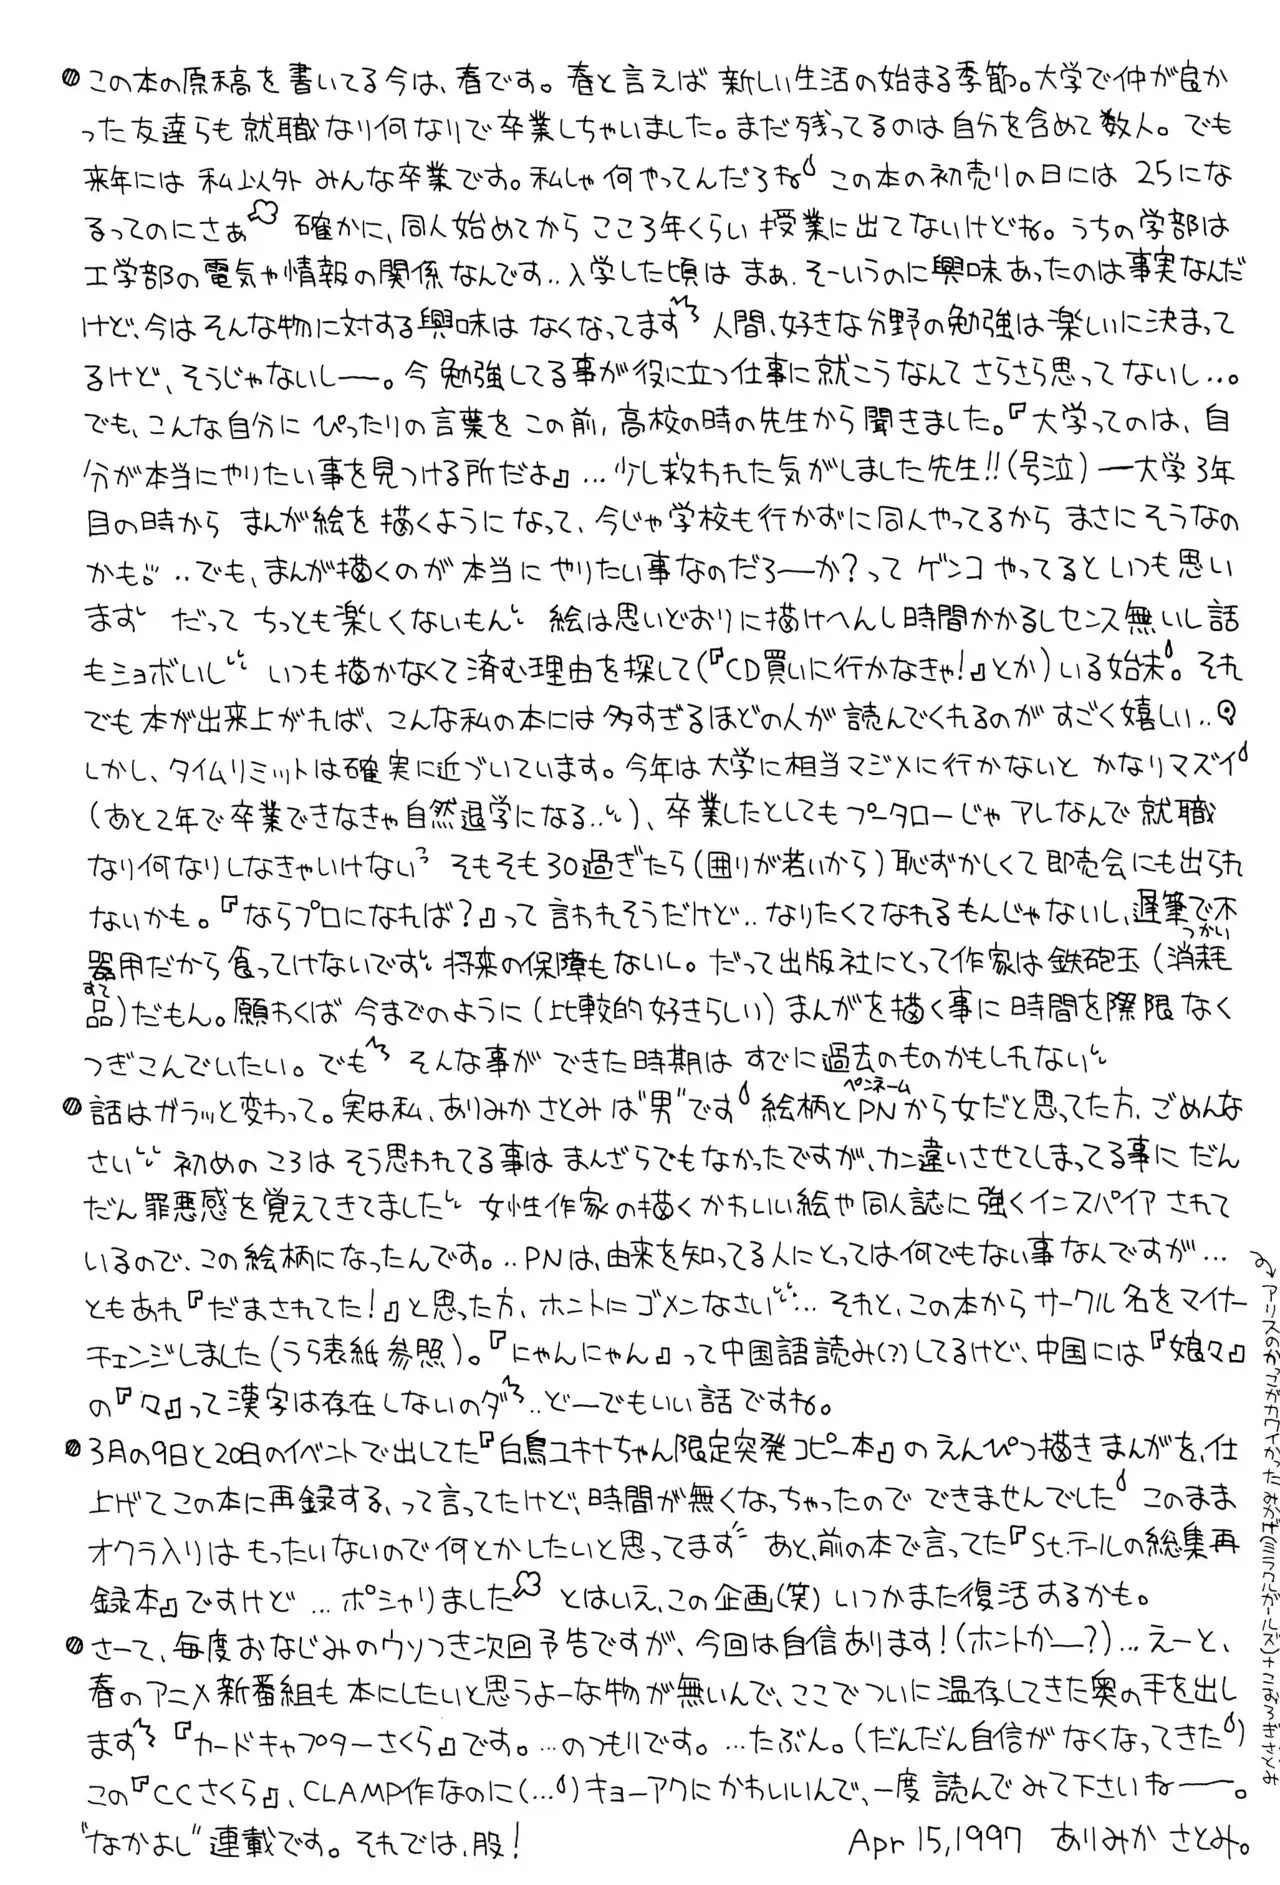 この本の原稿を書いてる今は、春です。春と言えば新しい生活の始まる季節。大学で仲が良か
った友達らも就職なり何なりで卒業しちゃいました。まだ残ってるのは自分を含めて数人。でも
来年には私以外みんな卒業です。私しゃ何やってんだろね この本の初売りの日には25にな
るってのにさぁ 確かに、同人始めてからここ3年くらい授業に出てないけどね。うちの学部は
工学部の電気や情報の関係なんです‥入学した頃はまぁ、そーいうのに興味あったのは事実なんだ
けど、今はそんな物に対する興味はなくなってます 人間、好きな分野の勉強は楽しいに決まって
るけど、そうじゃないしー。今勉強してる事が役に立つ仕事に就こうなんてさらさら思ってないし‥。
でも、こんな自分にぴったりの言葉をこの前、高校の時の先生から聞きました。『大学ってのは、自
分が本当にやりたい事を見つける所だよ』…少し救われた気がしました先生!!(号泣)ー大学3年
目の時からまんが絵を描くようになって、今じゃ学校も行かずに同人やってるからまさにそうなの
かも。‥でも、まんが描くのが本当にやりたい事なのだろーか?ってゲンコやってるといつも思い
ます だってちっとも楽しくないもん 絵は思いどおりに描けへんし時間かかるしセンス無いし話
もショボいし いつも描かなくて済む理由を探して(『CD買いに行かなきゃ!』とか)いる始末。それ
でも本が出来上がれば、こんな私の本には多すぎるほどの人が読んでくれるのがすごく嬉しい‥
しかし、タイムリミットは確実に近づいています。今年は大学に相当マジメに行かないとかなりマズイ
(あと2年で卒業できなきゃ自然退学になる‥)、卒業したとしてもプータローじゃアレなんで就職
なり何なりしなきゃいけない そもそも30過ぎたら(囲りが若いから)恥ずかしくて即売会にも出られ
ないかも。『ならプロになれば?』って言われそうだけど‥なりたくてなれるもんじゃないし、遅筆で不
器用だから食ってけないです 将来の保障もないし。だって出版社にとって作家は鉄砲玉(消耗
つかい
すて
品)だもん。願わくば今までのように(比較的好きらしい)まんがを描く事に時間を際限なく
つぎこんでいたい。でも そんな事ができた時期はすでに過去のものかもしれない
ペンネーム
話はガラッと変わって。実は私、ありみかさとみは"男"です 絵柄とPNから女だと思ってた方、ごめんな
さい 初めのころはそう思われてる事はまんざらでもなかったですが、カン違いさせてしまってる事にだん
だん罪悪感を覚えてきてました 女性作家の描くかわいい絵や同人誌に強くインスパイアされて
いるので、この絵柄になったんです。‥PNは、由来を知ってる人にとっては何でもない事なんですが…
ともあれ『だまされてた!』と思った方、ホントにゴメンなさい… それと、この本からサークル名をマイナー
チェンジしました(うら表紙参照)。『にゃんにゃん』って中国語読み(?)してるけど、中国には『娘々』
の『々』って漢字は存在しないのダ‥どーでもいい話ですね。
3月の9日と20日のイベントで出してた『白鳥ユキナちゃん限定突発コピー本』のえんぴつ描きまんがを、仕
上げてこの本に再録する、って言ってたけど、時間が無くなっちゃったのでできませんでした このまま
オクラ入りはもったいないので何とかしたいと思ってます あと、前の本で言ってた『St.テールの総集再
録本』ですけど…ポシャりました とはいえ、この企画(笑)いつかまた復活するかも。
さーて、毎度おなじみのウソつき次回予告ですが、今回は自信あります!(ホントかー?)…えーと、
春のアニメ新番組も本にしたいと思うよーな物が無いんで、ここでついに温存してきた奥の手を出し
ます『カードキャプターさくら』です。…のつもりです。…たぶん。(だんだん自信がなくなってきた)
この『CCさくら』、CLAMP作なのに(…)キョーアクにかわいいんで、一度読んでみて下さいねー。
"なかよし"連載です。それでは、股! Apr 15,1997 ありみかさとみ。
アリスのかっこがカワイかったみかげ(ミラクルガールズ)+こおろぎさとみ